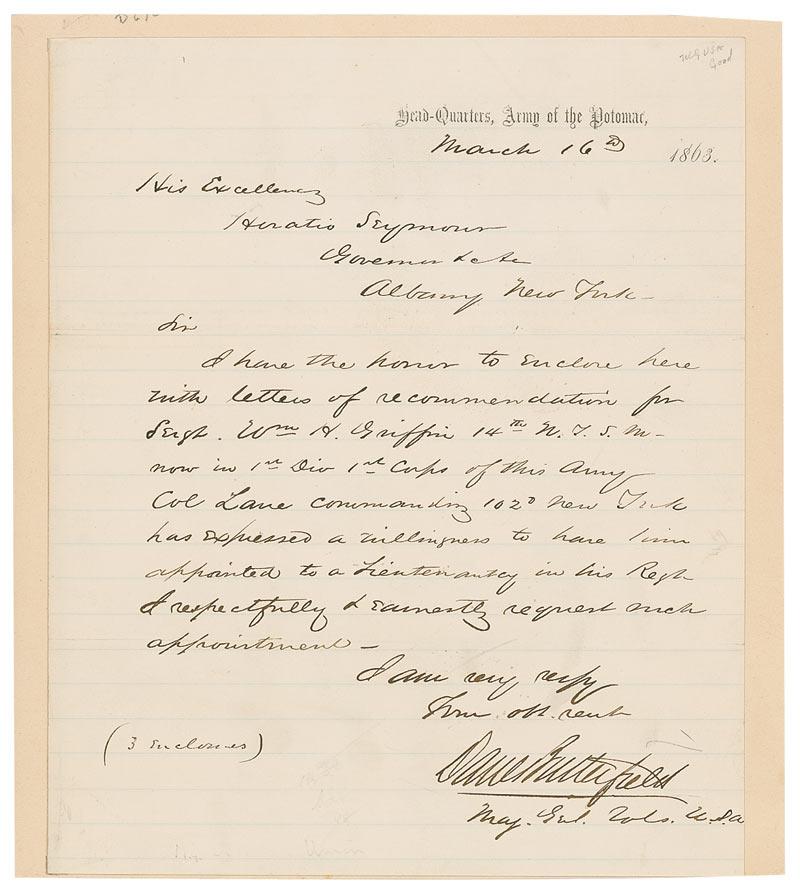 Head-Quarters, Army of the Potomac,
March 16th 1863.
His Excellency
Horatio Seymour
Governor &c &c
Albany New York -
Sir
I have the honor to enclose here
with letters of recommendation for
Sergt. Wm H. Griffin 14th N. Y. S. M -
now in 1st Div 1st Corps of this Army
Col Lane commanding 102d New York
has expressed a willingness to have him
appointed to a Lieutenantcy in his Regt
I respectfully & earnestly request such
appointment -
I am very respy
Your obt. servt
(3 enclosures)
Danl Butterfield
Maj. Genl. Vols. U.S.A